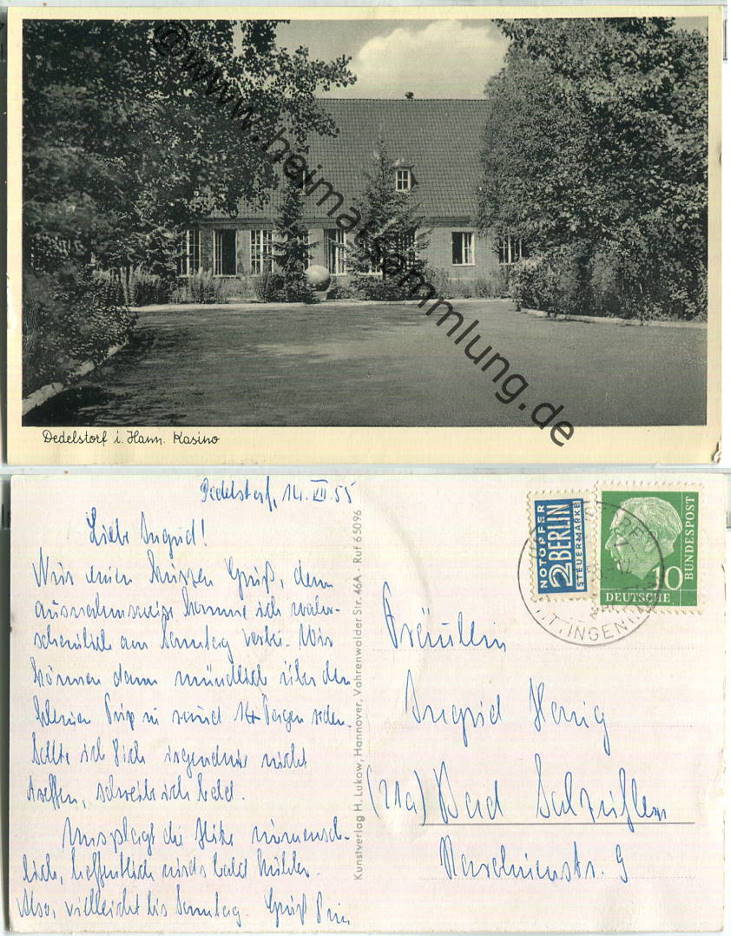 © www.heimatsammlung.de
Dedelstorf i. Hann. Kasino
Dedelstorf, 14. VII 55
Liebe Ingrid!
Nur einen kurzen Gruß, denn
ausnahmsweise komme ich wahr-
scheinlich am Sonntag vorbei. Wir
können dann mündlich über den
kleinen Trip in rund 14 Tagen reden.
Sollte ich Dich irgendwie nicht
treffen, schreibe ich bald.
Uns plagt die Hitze unmensch-
lich, hoffentlich wird's bald kühler.
Also, vielleicht bis Sonntag. Gruß
Kunstverlag H. Lukow, Hannover, Vahrenwalder Str. 46A - Ruf 65096
NOTOPFER
2 BERLIN
STEUERMARKE
DEUTSCHE
BUNDESPOST
10
Fräulein
Ingrid
(21a) Bad Salzuflen